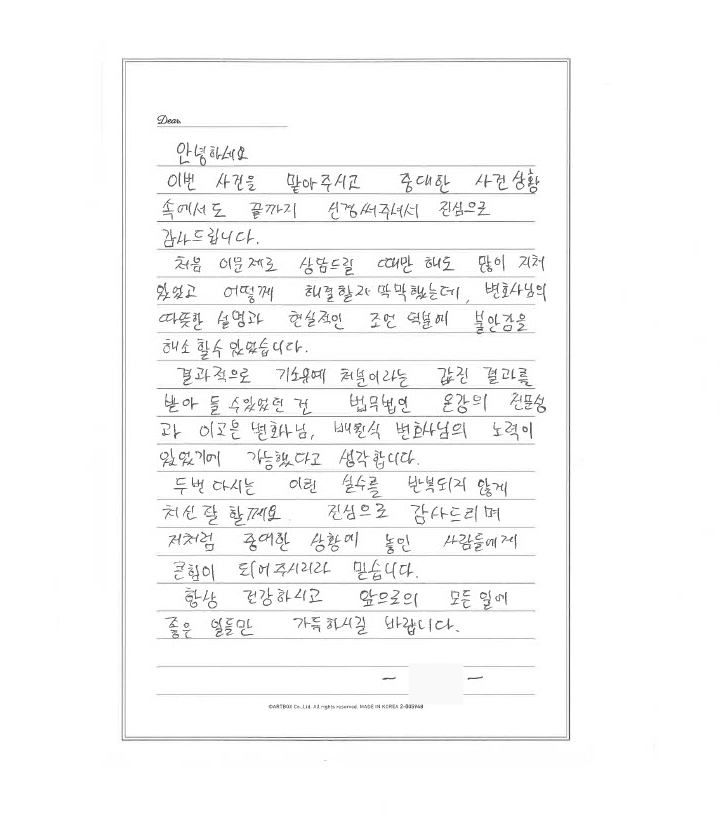 Dear.
안녕하세요
이번 사건을 맡아주시고 중대한 사건상황
속에서도 끝까지 신경써주셔서 진심으로
감사드립니다.
처음 이문제로 상담드릴 때만 해도 많이 지쳐
있었고 어떻게 해결할지 막막했는데, 변호사님의
따뜻한 설명과 현실적인 조언 덕분에 불안감을
해소 할수 있었습니다.
결과적으로 기소유예 처분이라는 값진 결과를
받아 들 수있었던 건 법무법인 온강의 전문성
과 이고은 변호사님, 배한식 변호사님의 노력이
있었기에 가능했다고 생각합니다.
두번 다시는 이런 실수를 반복되지 않게
처신 잘 할께요. 진심으로 감사드리며
저처럼 중대한 상황에 놓인 사람들에게
큰힘이 되어주시리라 믿습니다.
항상 건강하시고 앞으로의 모든 일에
좋은 일들만 가득하시길 바랍니다.
- -
©ARTBOX Co.,Ltd. All rights reserved. MADE IN KOREA 2-005948